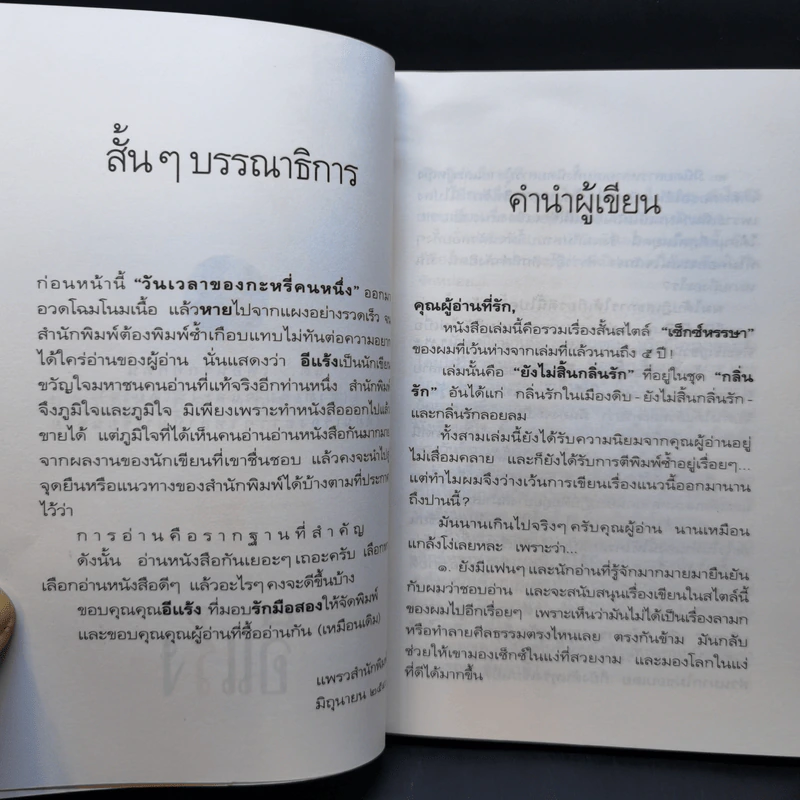 สั้น ๆ บรรณาธิการ
ก่อนหน้านี้ “วันเวลาของกะหรี่คนหนึ่ง” ออกมา
อวดโฉมโนมเนื้อ แล้วหายไปจากแผงอย่างรวดเร็ว จน
สำนักพิมพ์ต้องพิมพ์ซ้ำเกือบแทบไม่ทันต่อความอยาก
ได้ใคร่อ่านของผู้อ่าน นั่นแสดงว่า อีแร้งเป็นนักเขียน
ขวัญใจมหาชนคนอ่านที่แท้จริงอีกท่านหนึ่ง สำนักพิมพ์
จึงภูมิใจและภูมิใจ มิเพียงเพราะทำหนังสือออกไปแล้ว
ขายได้ แต่ภูมิใจที่ได้เห็นคนอ่านอ่านหนังสือกันมากมาย
จากผลงานของนักเขียนที่เขาชื่นชอบ แล้วคงจะนำไปสู่
จุดยืนหรือแนวทางของสำนักพิมพ์ได้บ้างตามที่ประกาศ
ไว้ว่า
การอ่านคือรากฐานที่สำคัญ
ดังนั้น อ่านหนังสือกันเยอะๆ เถอะครับ เลือก
เลือกอ่านหนังสือดีๆ แล้วอะไรๆ คงจะดีขึ้นบ้าง
ขอบคุณคุณอีแร้ง ที่มอบรักมือสองให้จัดพิมพ์
และขอบคุณคุณผู้อ่านที่ซื้ออ่านกัน (เหมือนเดิม)
แพรวสำนักพิมพ์
มิถุนายน
คำนำผู้เขียน
คุณผู้อ่านที่รัก,
หนังสือเล่มนี้คือรวมเรื่องสั้นสไตล์ “เซ็กซ์หรรษา”
ของผมที่เว้นห่างจากเล่มที่แล้วนานถึง ๕ ปี!
เล่มนั้นคือ “ยังไม่สิ้นกลิ่นรัก” ที่อยู่ในชุด “กลิ่น
รัก” อันได้แก่ กลิ่นรักในเมืองดิบ - ยังไม่สิ้นกลิ่นรัก -
และกลิ่นรักลอยลม
ทั้งสามเล่มนี้ยังได้รับความนิยมจากคุณผู้อ่านอยู่
ไม่เสื่อมคลาย และก็ยังได้รับการตีพิมพ์ซ้ำอยู่เรื่อยๆ...
แต่ทำไมผมจึงว่างเว้นการเขียนเรื่องแนวนี้ออกมานาน
ถึงปานนี้?
มันนานเกินไปจริงๆ ครับคุณผู้อ่าน นานเหมือน
แกล้งโง่เลยหละ เพราะว่า...
๑. ยังมีแฟนๆ และนักอ่านที่รู้จักมากมายมายืนยัน
กับผมว่าชอบอ่าน และจะสนับสนุนเรื่องเขียนในสไตล์นี้
ของผมไปอีกเรื่อยๆ เพราะเห็นว่ามันไม่ได้เป็นเรื่องลามก
หรือทำลายศีลธรรมตรงไหนเลย ตรงกันข้าม มันกลับ
ช่วยให้เขามองเซ็กซ์ในแง่ที่สวยงาม และมองโลกในแง่
ที่ดีได้มากขึ้น